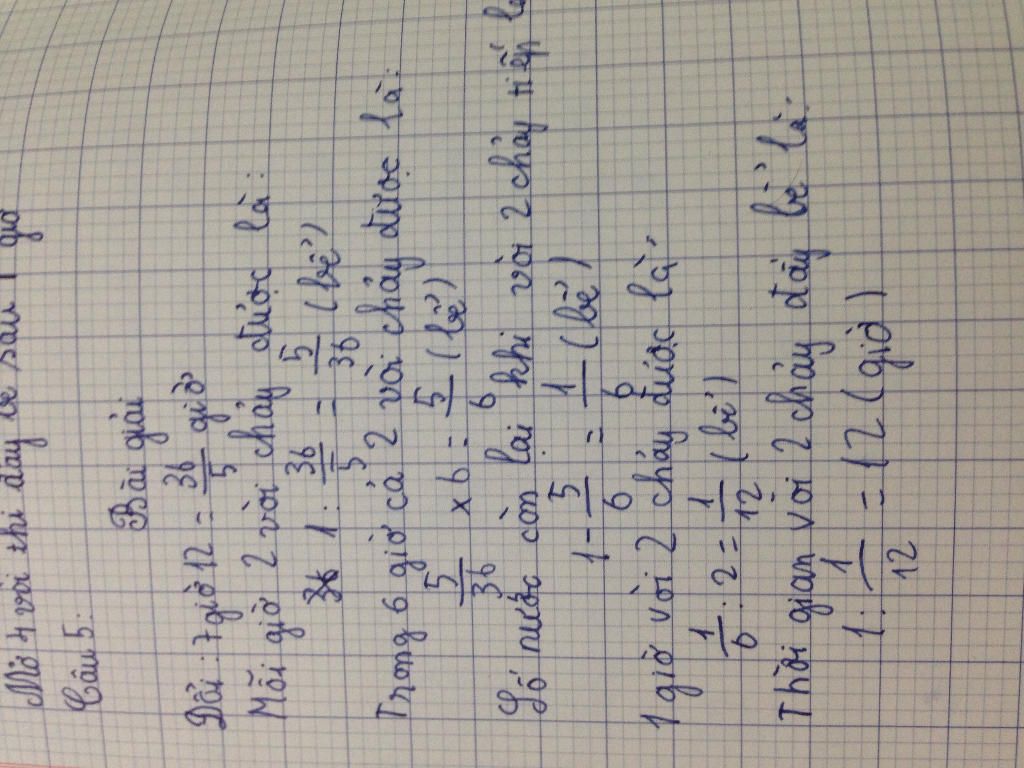 Mở 4 vòi thì đầy bể sau 1 giờ
Câu 5:
Bài giải
Đổi: 7 giờ 12 = 36/5 giờ
Mỗi giờ 2 vòi chảy được là:
1 : 36/5 = 5/36 (bể)
Trong 6 giờ cả 2 vòi chảy được là:
5/36 x 6 = 5/6 (bể)
Số nước còn lại khi vòi 2 chảy tiếp
1 - 5/6 = 1/6 (bể)
1 giờ vòi 2 chảy được là:
1/6 : 2 = 1/12 (bể)
Thời gian vòi 2 chảy đầy bể là:
1 : 1/12 = 12 (giờ)